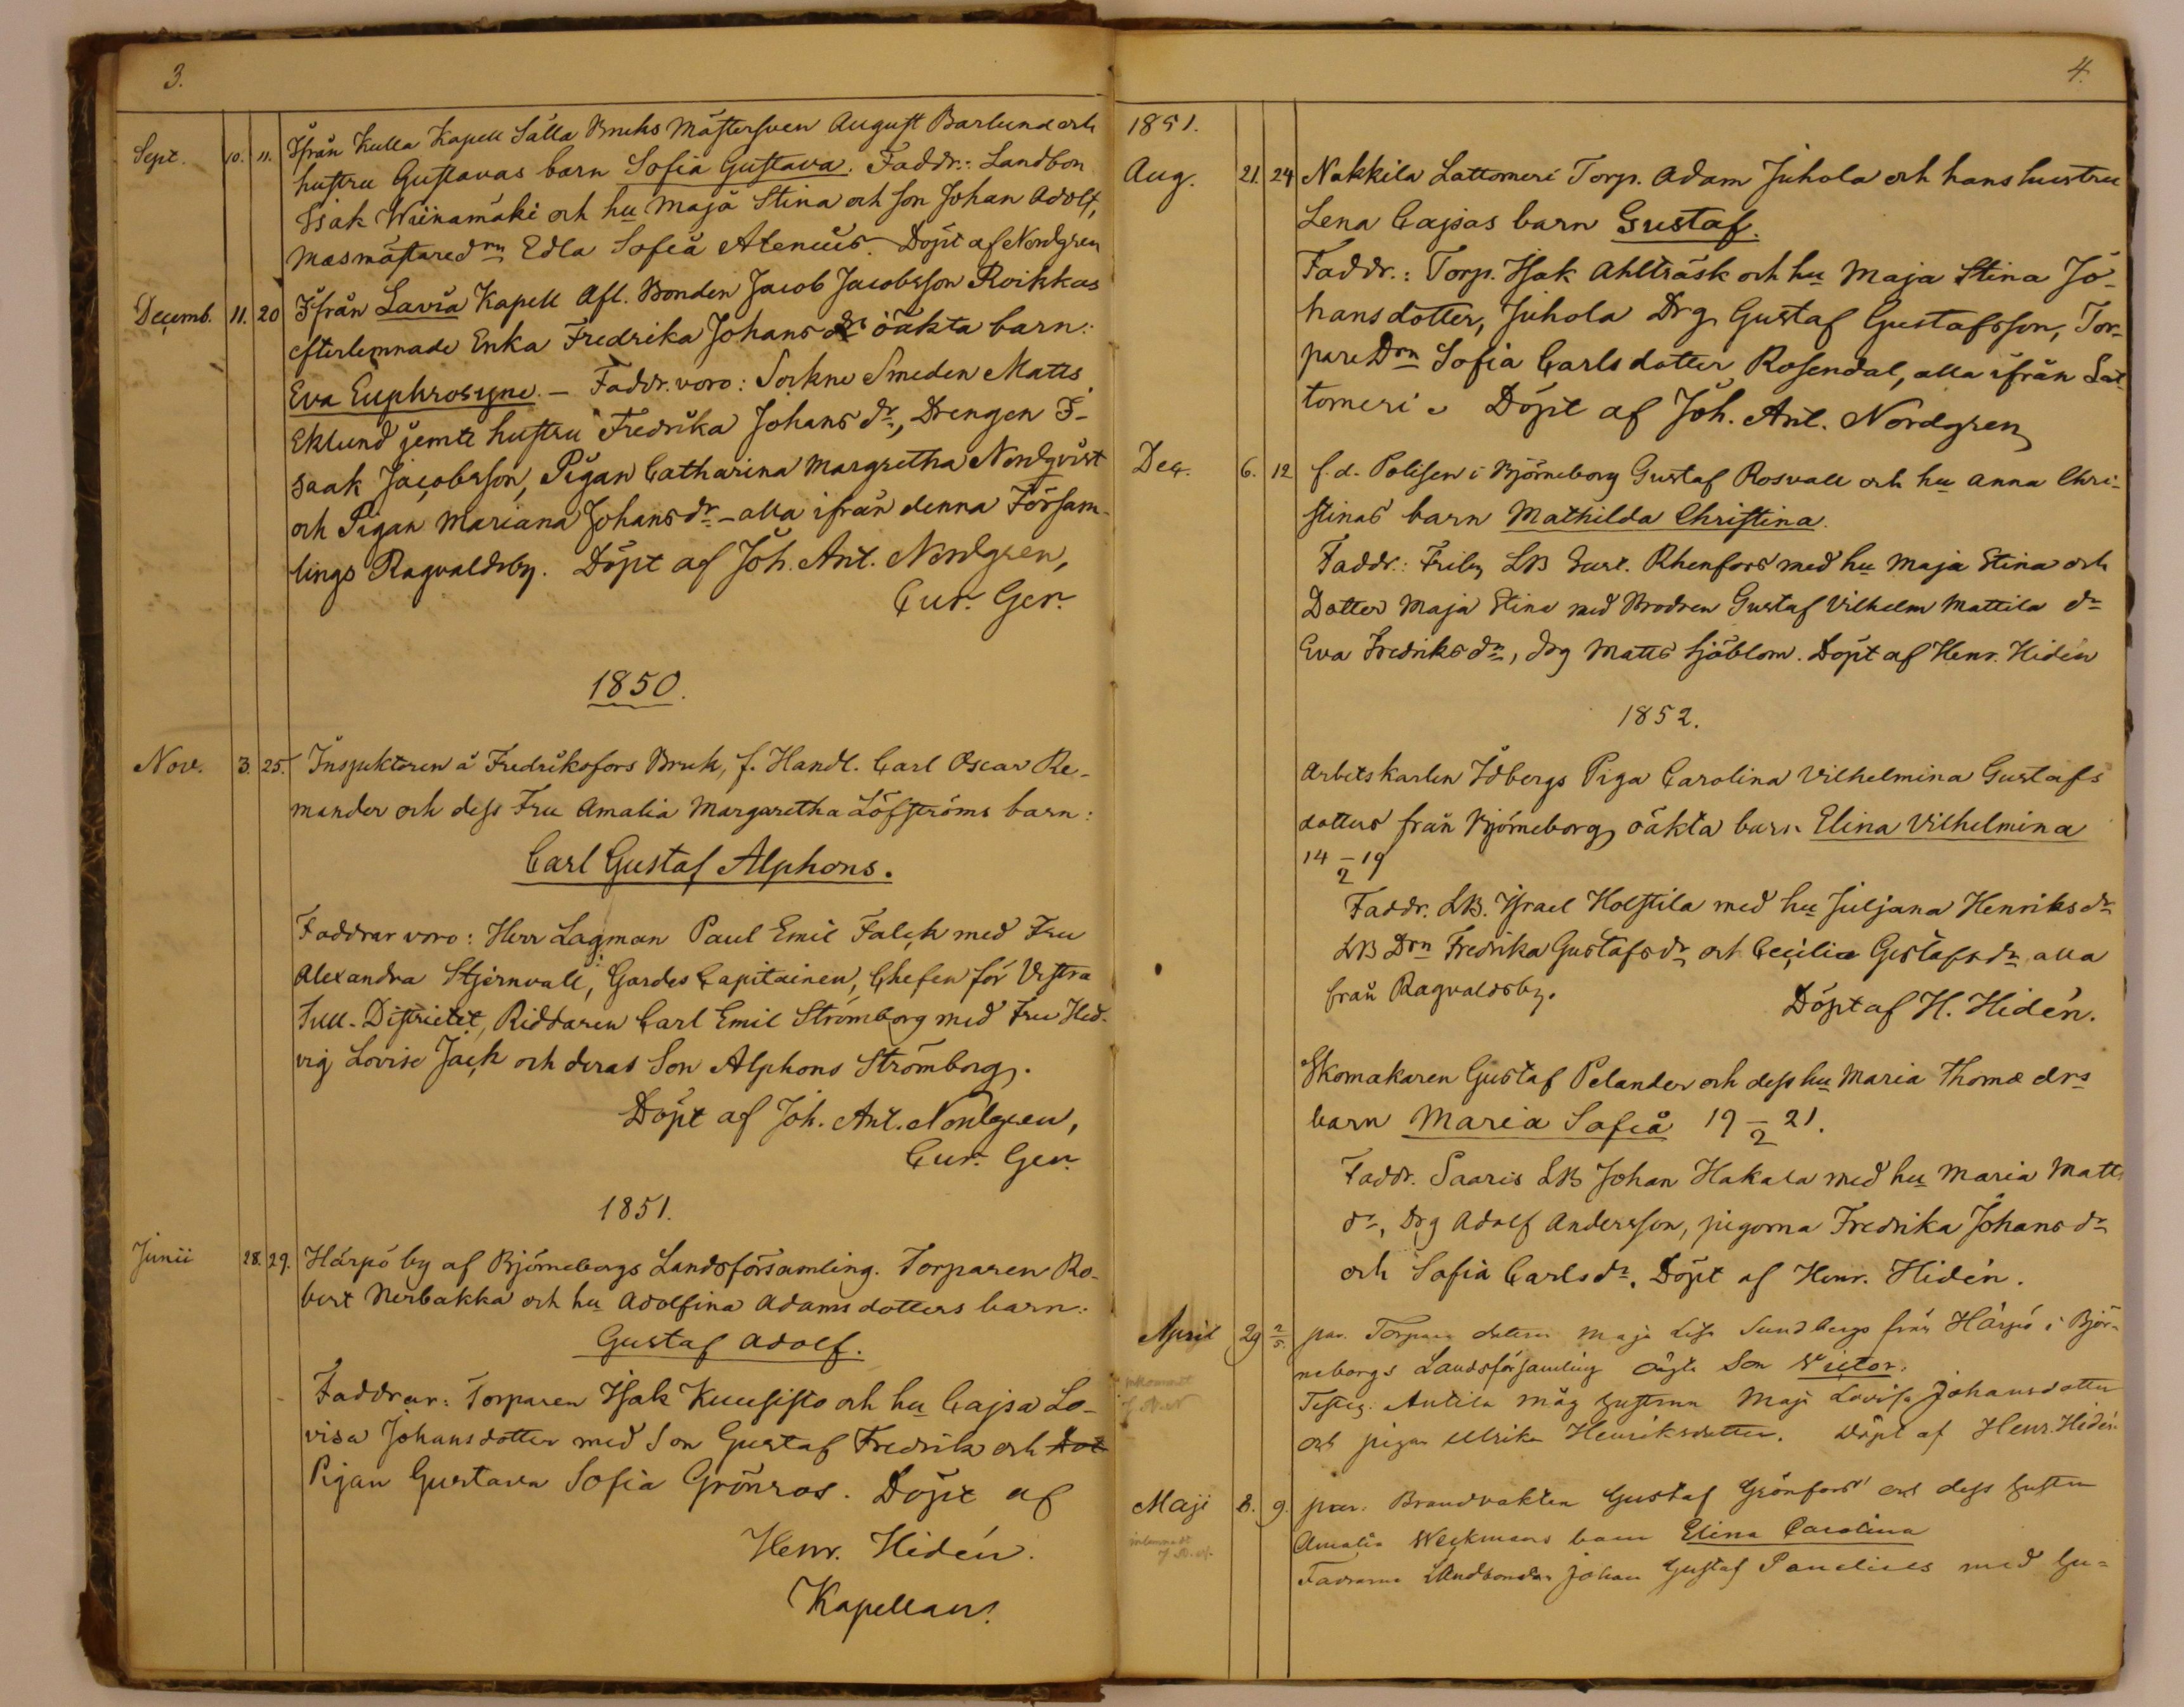 3.
Sept. 10. 11. Ifrån Kulla Kapell Sälla Bruks Mästersven August Barlund och
hustru Gustavas barn Sofia Gustava. Faddr.: Landbon
Isak Wiinamäki och hu Maja Stina och son Johan Adolf,
Masmästaredrn Edla Sofia Alenius. Döpt af Nordgren
Decemb. 11. 20 Ifrån Lavia Kapell Afl. Bonden Jacob Jacobsson Roikkas
efterlemnade Enka Fredrika Johans drs oäkta barn:
Eva Euphrosyne. – Faddr. voro: Sockne Smeden Matts
Eklund jemte hustru Fredrika Johans dr, Drengen I-
saak Jacobsson, Pigan Catharina Margretha Nordqvist
och Pigan Mariana Johansdr – alla ifrån denna Försam-
lings Ragvaldsby. Döpt af Joh. Ant. Nordgren,
Cur. Ger.
1850.
Nov. 3. 25. Inspektoren å Fredriksfors Bruk, f. Handl. Carl Oscar Re-
mander och dess Fru Amalia Margaretha Löfströms barn:
Carl Gustaf Alphons.
Faddrar voro: Herr Lagman Paul Emil Falck med Fru
Alexandra Stjernvall, Gardes Capitainen, Chefen för Vestra
Tull-Distrietet, Riddaren Carl Emil Strömborg med Fru Hed-
vig Lovise Jack och deras Son Alphons Strömborg.
Döpt af Joh. Ant. Nordgren,
Cur. Ger.
1851.
Junii 28. 29. Härpö by af Björneborgs Landsförsamling. Torparen Ro-
bert Nerbakka och hu Adolfina Adamsdotters barn:
Gustaf Adolf.
Faddrar: Torparen Isak Kuusisto och hu Cajsa Lo-
visa Johansdotter med Son Gustaf Fredrik och Dot
Pigan Gustava Sofia Grönros. Döpt af
Henr. Hidén.
Kapellan.
4.
1851.
Aug. 21. 24 Nakkila Lattomeri Torp. Adam Juhola och hans hustru
Lena Cajsas barn Gustaf.
Faddr.: Torp. Isak Ahlträsk och hu Maja Stina Jo-
hansdotter, Juhola Drg Gustaf Gustafsson, Tor-
pare Drn Sofia Carlsdotter Rosendal, alla ifrån Lat-
tomeri. Döpt af Joh. Ant. Nordgren
Dec. 6. 12 f. d. Polisen i Björneborg Gustaf Rosvall och hu Anna Chri-
stinas barn Mathilda Christina.
Faddr.: Friby LB Gust. Rhenfors med hu Maja Stina och
Dotter Maja Stina med Brodren Gustaf Vilhelm Mattila dr
Eva Fredriks dr, drg Matts Sjöblom. Döpt af Henr. Hidén
1852.
Arbetskarlen Idbergs Piga Carolina Vilhelmina Gustafs
dotters från Björneborg oäkta barn Elina Vilhelmina
14 – 19
2
Faddr. LB. Israel Holstila med hu Juljana Henriksdr
LB Drn Fredrika Gustafsdr och Cecilia Gustafsdr alla
från Ragvaldsby.
Döpt af H. Hidén.
Skomakaren Gustaf Pelander och dess hu Maria Thomæ drs
barn Maria Sofia 19 – 21.
2
Faddr. Saaris LB Johan Hakala med hu Maria Matts
dr, Drg Adolf Andersson, pigorna Fredrika Johansdr
och Sofia Carlsdr. Döpt af Henr. Hidén.
April 29 2/5 Torpare Maja Lisa Sundbergs från Härpö i Björ-
neborgs Landsförsamling Son Victor.
Antila måg hustrun Maja Lovisa Johansdotter
och pigan Ulrika Henriksdotter. Döpt af Henr. Hidén
Maji 8. 9. Brandvakten Gustaf Grönfors och dess hustru
Amalia Weckmans barn Elina Carolina
Faddrarne Landbonden Johan Gustaf Panelius med hu=